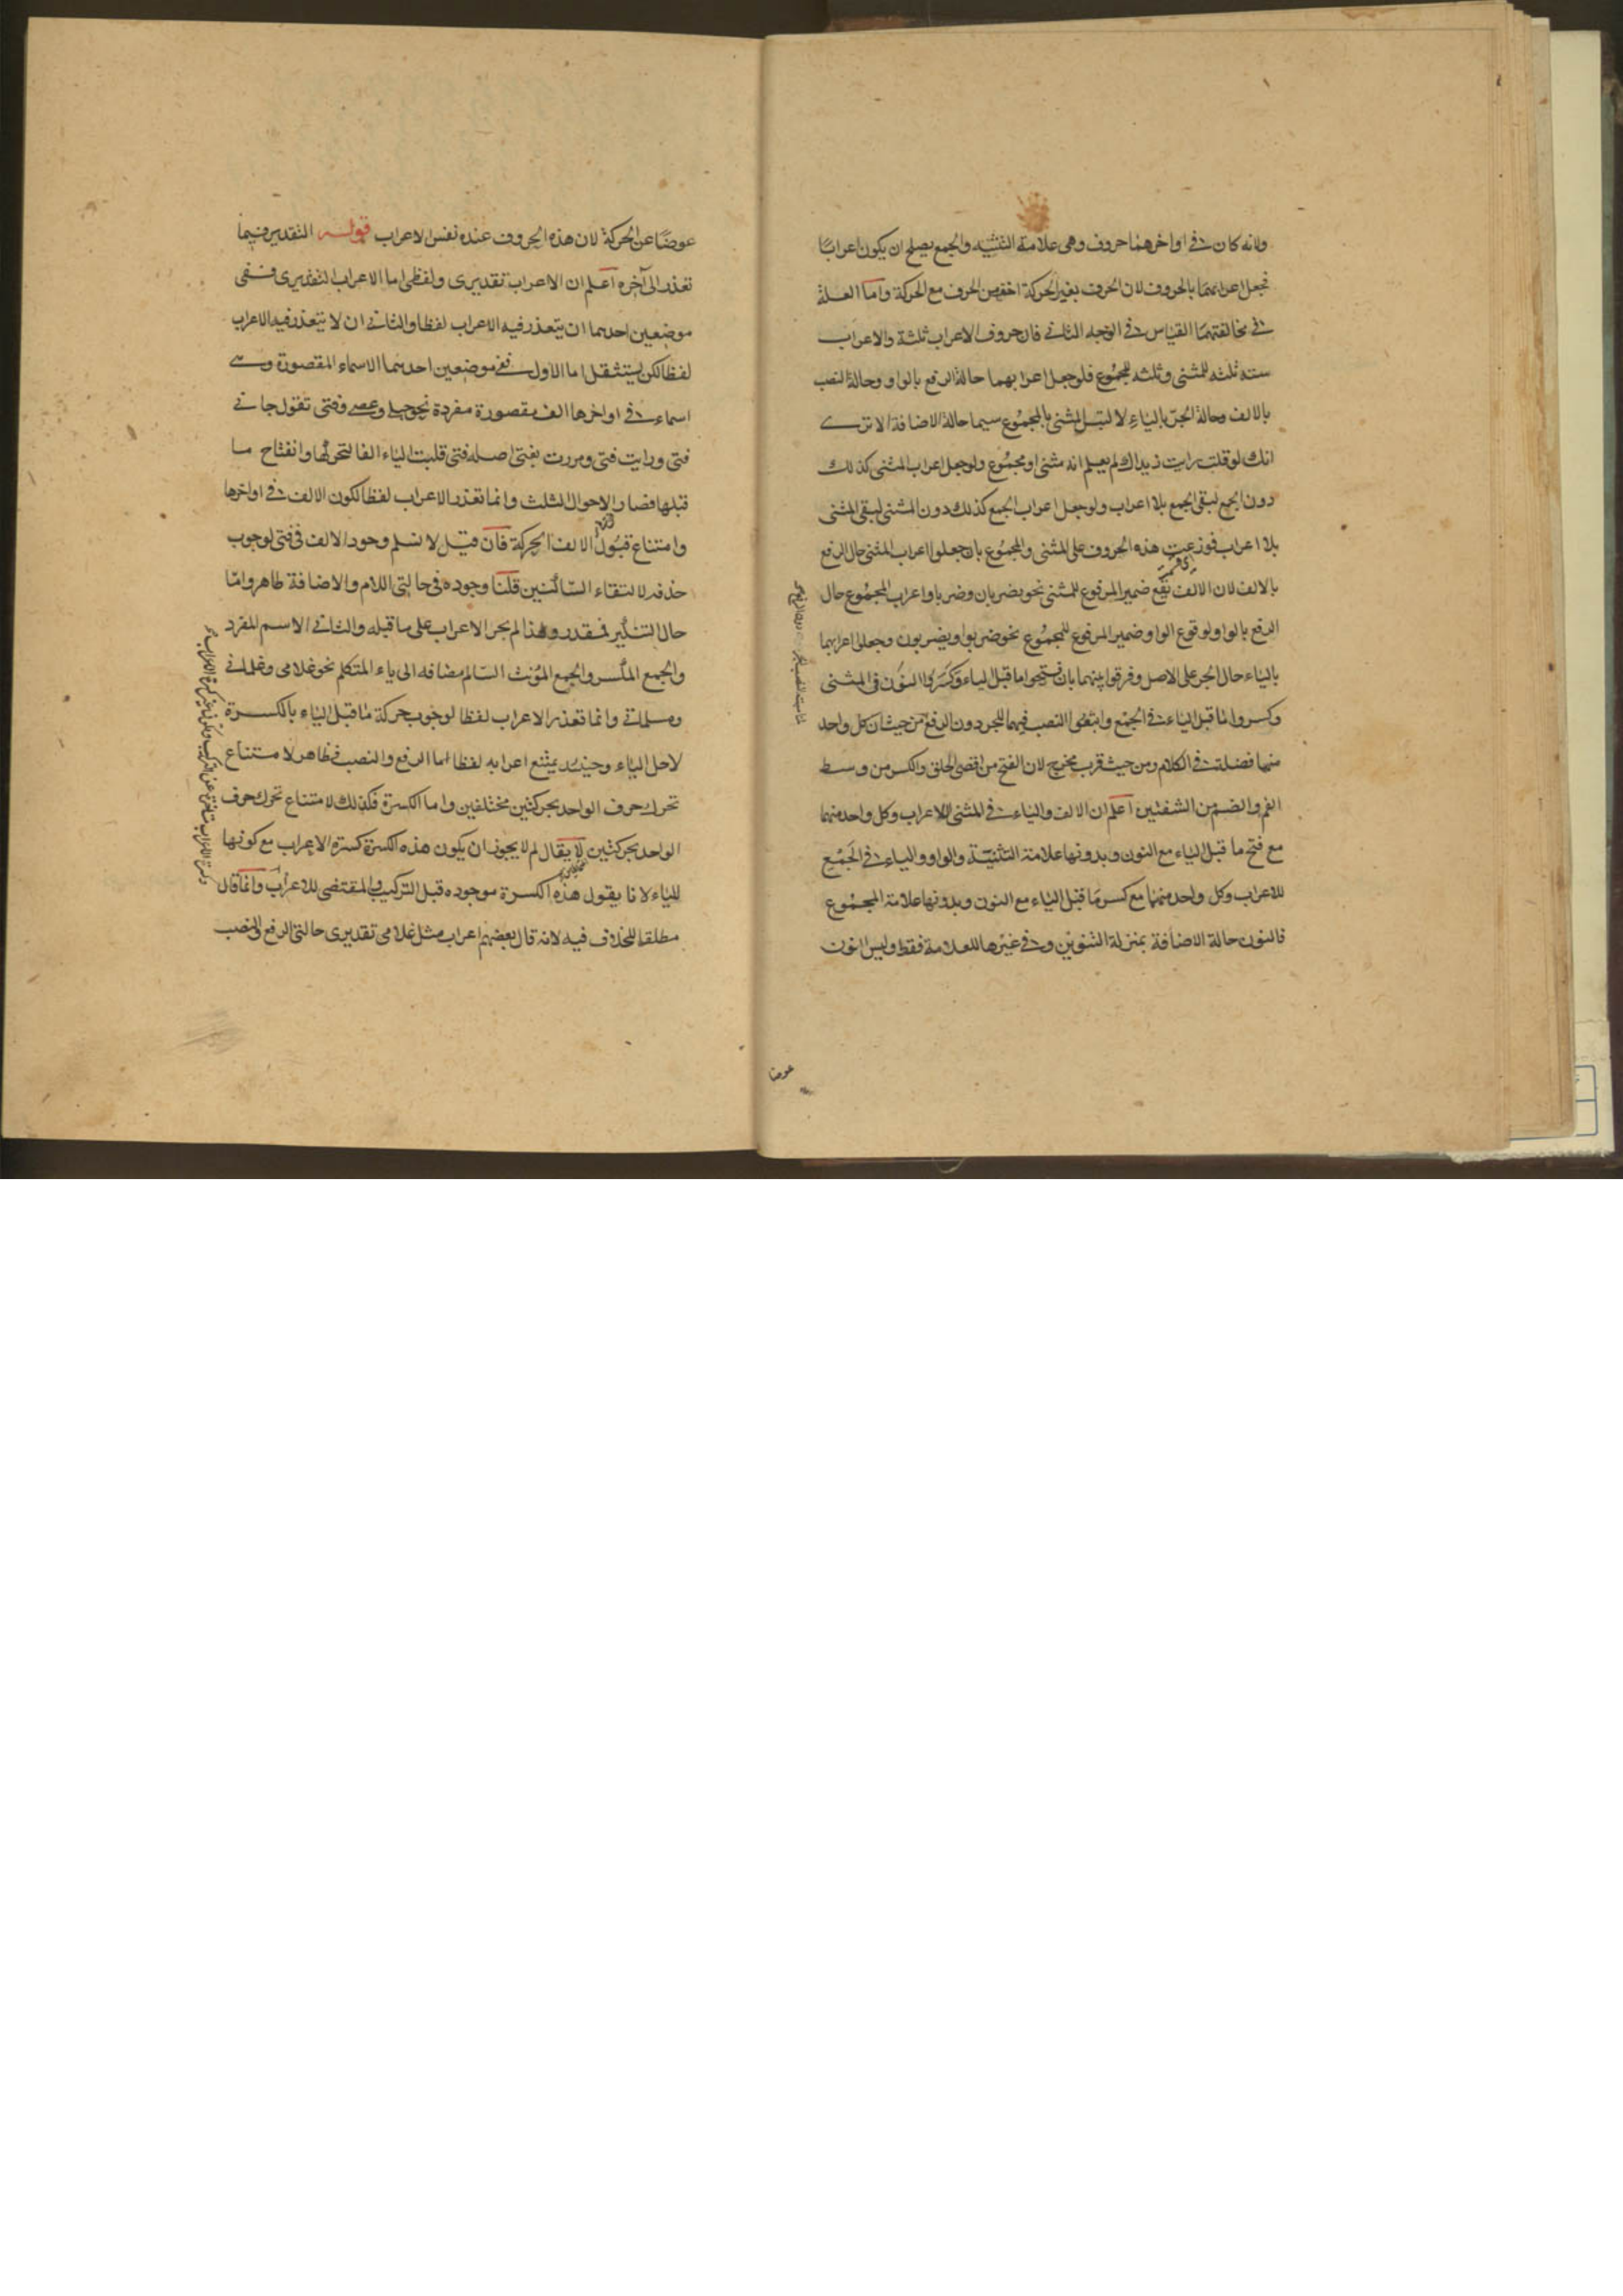 ولانه كان فى اواخرهما حروف وهى علامة التثنيه والجمع يصلح ان يكون اعرابًا
تجعل اعرابهما بالحروف لان الحرف بغير الحركة اخف من الحرف مع الحركة واما العلة
فى مخالفتهما القياس فى الوجه الثانى فان حروف الاعراب ثلثة والاعراب
ستة ثلثه للمثنى وثلثه للمجموع فلو جعل اعرابهما حالة الرفع بالواو وحالة النصب
بالالف وحالة الجرّ بالياء لالتبس المثنى بالمجموع سيما حالة الاضافة الا ترى
انك لو قلت رايت زيداك لم يعلم انه مثنى او مجموع ولو جعل اعراب المثنى كذلك
دون الجمع لبقى الجمع بلا اعراب ولو جعل اعراب الجمع كذلك دون المثنى لبقى المثنى
بلا اعراب فوزعت هذه الحروف على المثنى والمجموع بان جعلوا اعراب المثنى حال الرفع
بالالف لان الالف تقع ضمير المرفوع للمثنى نحو يضربان وضربا واعراب المجموع حال
الرفع بالواو لوقوع الواو ضمير المرفوع للمجموع نحو ضربوا ويضربون وجعلوا اعرابهما
بالياء حال الجر على الاصل وفرقوا بينهما بان فتحوا ما قبل الياء وكسروا النون فى المثنى
وكسروا ما قبل الياء فى الجمع واتبعوا النصب فيهما للجر دون الرفع من حيث ان كل واحد
منهما فضلت فى الكلام ومن حيث قرب مخرج لان الفتح من اقصى الحلق والكسر من وسط
الفم والضم من الشفتين اعلم ان الالف والياء فى المثنى للاعراب وكل واحد منهما
مع فتح ما قبل الياء مع النون وبدونها علامة التثنيّة والواو والياء فى الجَمْع
للاعراب وكل واحد منهما مع كسر ما قبل الياء مع النون وبدونها علامة المجموع
فالنون حالة الاضافة بمنزلة التنوين وفى غيرها للعلامة فقط وليس النون
عوضا
عوضًا عن الحركة لان هذه الحروف عنده نفس الاعراب قوله التقدير فيما
تعذر الى آخره اعلم ان الاعراب تقديرى ولفظى اما الاعراب التقديرى ففى
موضعين احدهما ان يتعذر فيه الاعراب لفظا والثانى ان لا يتعذر فيه الاعراب
لفظا لكن يستثقل اما الاول ففى موضعين احدهما الاسماء المقصورة وهى
اسماء فى اواخرها الف مقصورة مفردة نحو حبلى وعصى وفتى تقول جانى
فتى ورايت فتى ومررت بفتى اصله فتى قلبت الياء الفا لتحركها وانفتاح ما
قبلها فصار الاحوال الثلث وانما تعذر الاعراب لفظا لكون الالف فى اواخرها
وامتناع قبول الالف الحركة فان قيل لا نسلم وجود الالف فى فتى لوجوب
حذفه لالتقاء السّاكنين قلنا وجوده فى حالتى اللام والاضافة ظاهر وامّا
حال التنكير فمقدر ولهذا لم يجر الاعراب على ما قبله والثانى الاسم المفرد
والجمع المكسر والجمع المؤنث السّالم مضافه الى ياء المتكلم نحو غلامى وغلمانى
ومسلماتى وانما تعذر الاعراب لفظا لوجوب حركة ما قبل الياء بالكسرة
لاجل الياء وحينئذ يمتنع اعرابه لفظا اما الرفع والنصب فظاهر لامتناع
تحرك حرف الواحد بحركتين مختلفين واما الكسرة فكذلك لامتناع تحرك حرف
الواحد بحركتين لا يقال لم لا يجوز ان يكون هذه الكسرة كسرة الاعراب مع كونها
للياء لانا يقول هذه الكسرة موجوده قبل التركيب والمقتضى للاعراب وانما قال
مطلقا للخلاف فيه لانه قال بعضهم اعراب مثل غلامى تقديرى حالتى الرفع والنصب